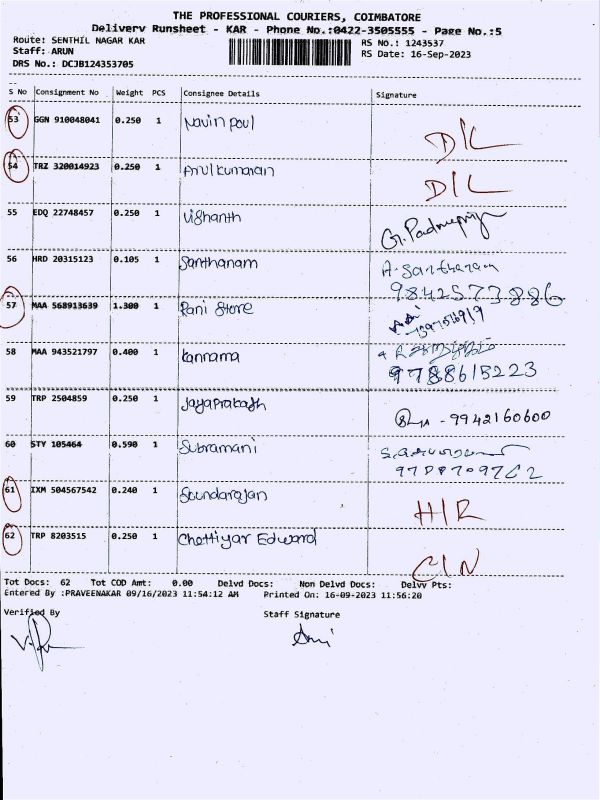 THE PROFESSIONAL COURIERS, COIMBATORE
Delivery Runsheet - KAR - Phone No.:0422-3505555 - Page No.:5
Route: SENTHIL NAGAR KAR RS No.: 1243537
Staff: ARUN RS Date: 16-Sep-2023
DRS No.: DCJB124353705
S No Consignment No Weight PCS Consignee Details Signature
53 GGN 910048041 0.250 1 Navin poul D/L
54 TRZ 320014923 0.250 1 Arulkumaran D/L
55 EDQ 22748457 0.250 1 Vishanth G. Padmapriya
56 HRD 20315123 0.105 1 Santhanam A. Santhanam
9842573886
57 MAA 568913639 1.300 1 Rani Store
58 MAA 943521797 0.400 1 Kannama
9788618223
59 TRP 2504859 0.250 1 Jayaprakash - 9942160600
60 STY 105464 0.590 1 Subramani
61 IXM 504567542 0.240 1 Soundarajan H/R
62 TRP 8203515 0.250 1 Chettiyar Edward C/N
Tot Docs: 62 Tot COD Amt: 0.00 Delvd Docs: Non Delvd Docs: Delvy Pts:
Entered By :PRAVEENAKAR 09/16/2023 11:54:12 AM Printed On: 16-09-2023 11:56:20
Verified By Staff Signature